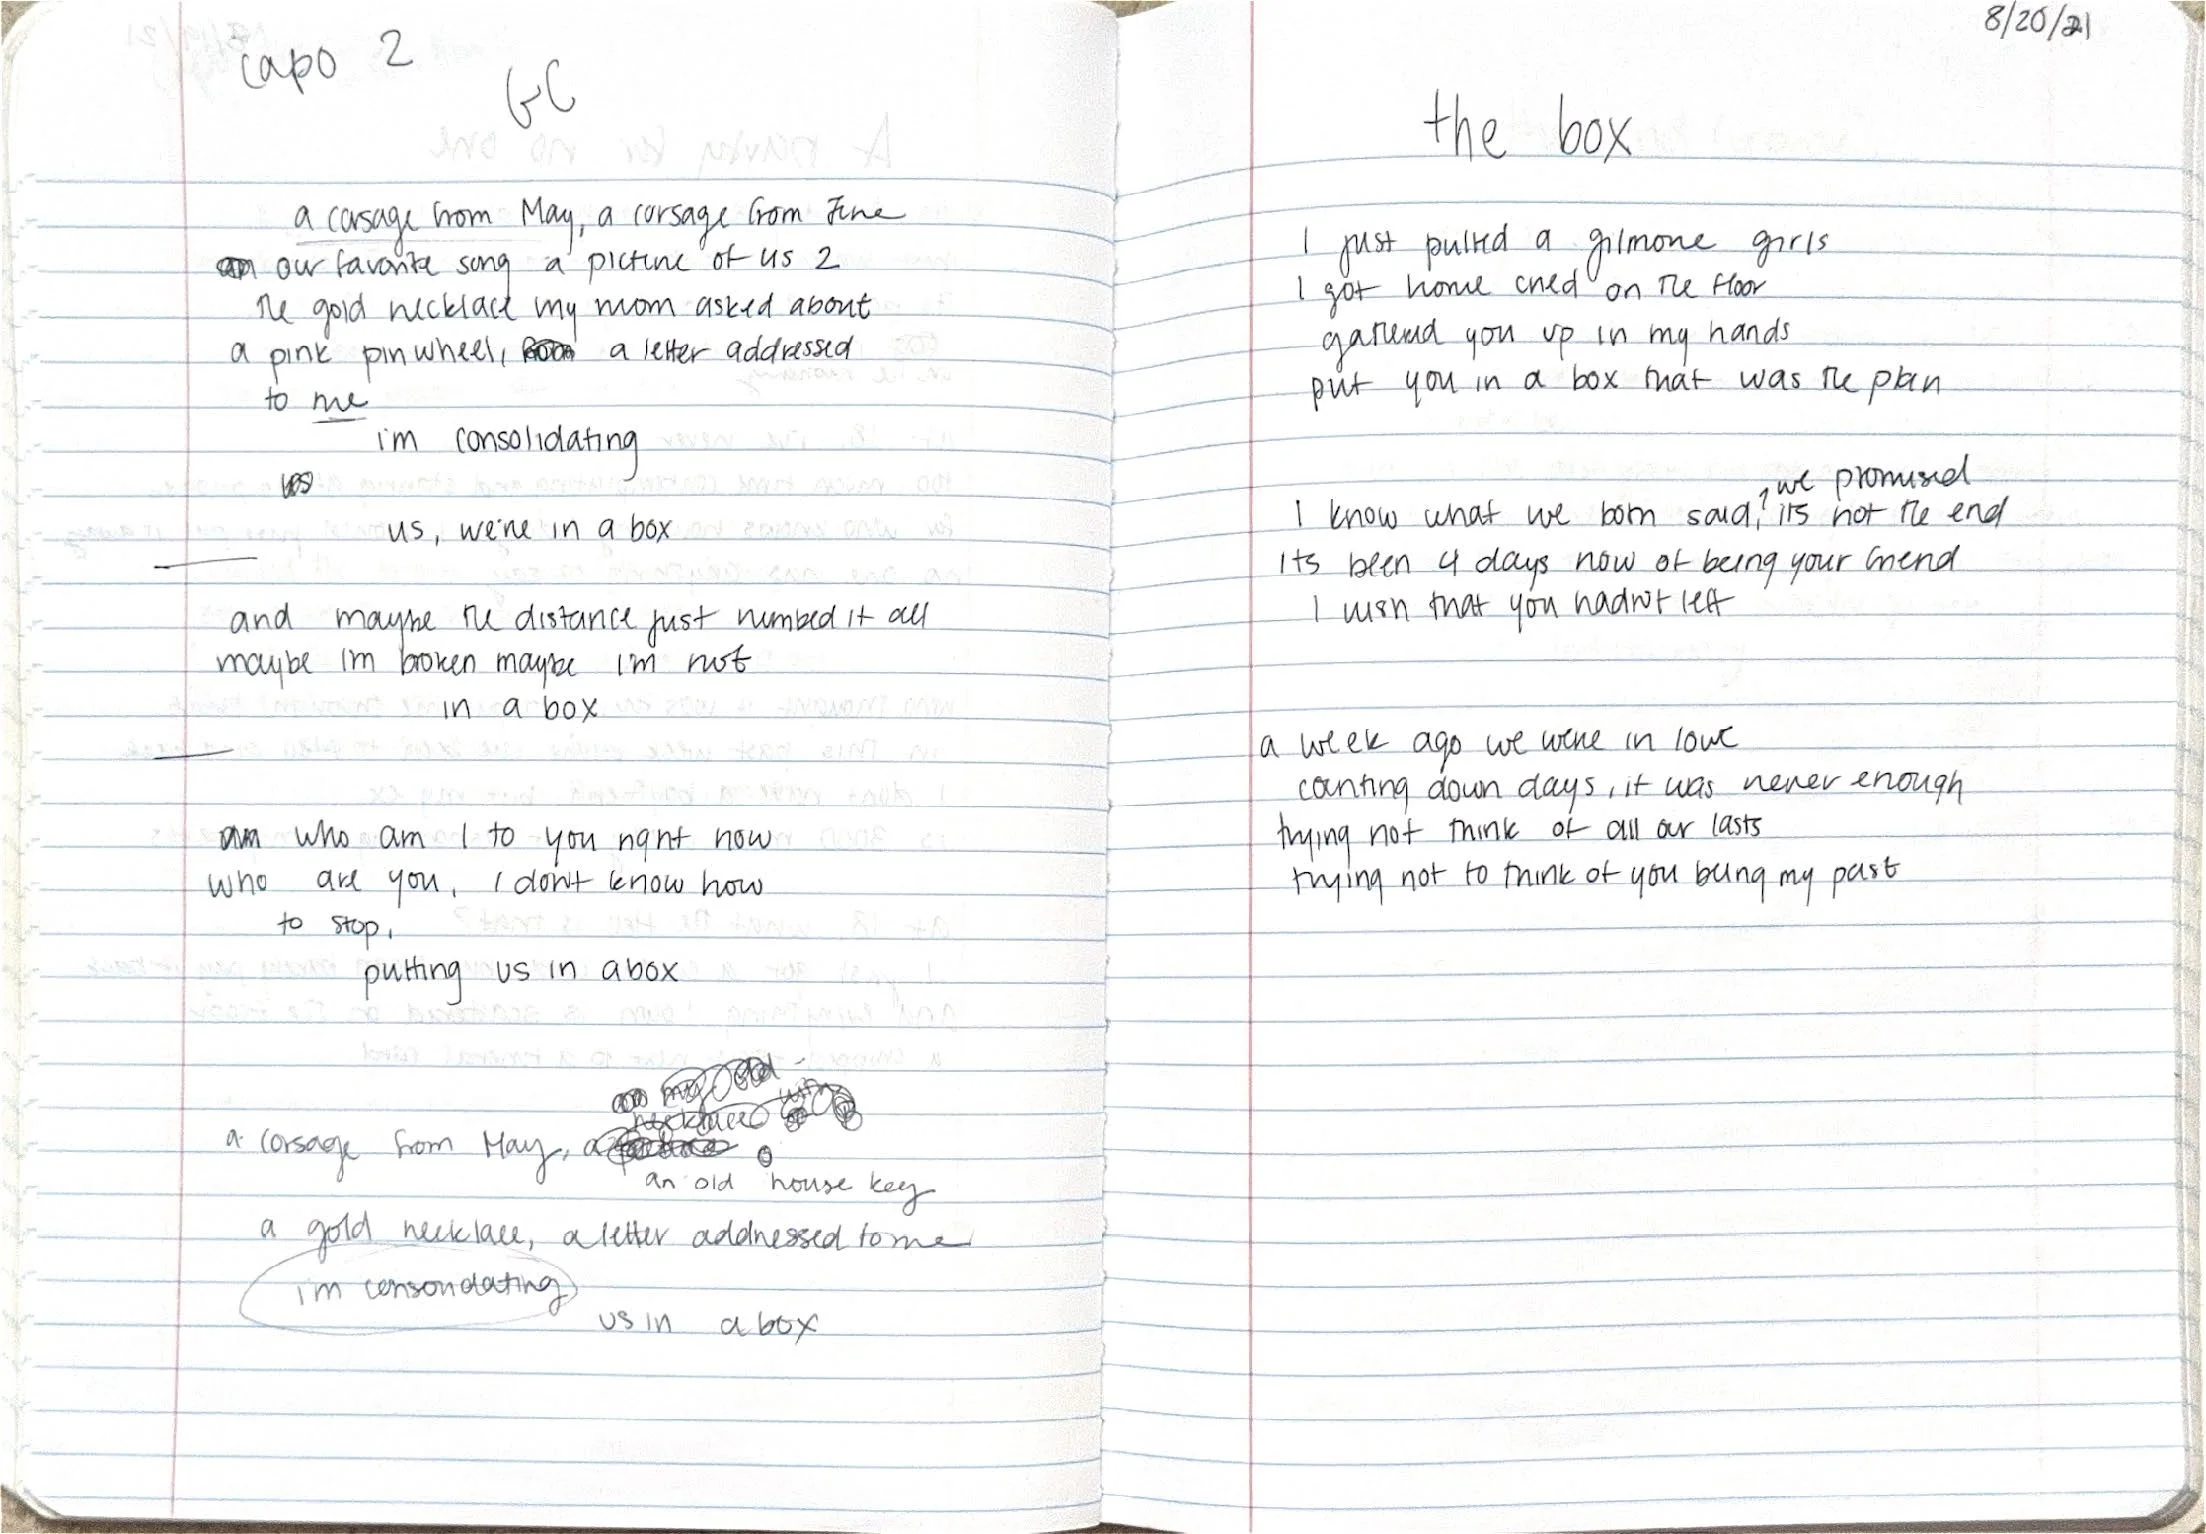 capo 2
GC
a corsage from May, a corsage from June
our favorite song a picture of us 2
the gold necklace my mom asked about
a pink pinwheel, a letter addressed
to me
i'm consolidating
us, we're in a box
and maybe the distance just numbed it all
maybe im broken maybe i'm not
in a box
who am I to you right now
who are you, I don't know how
to stop,
putting us in a box
my old
necklace
a corsage from May, a
an old house key
a gold necklace, a letter addressed to me
i'm consolidating
us in a box
8/20/21
the box
I just pulled a gilmore girls
I got home cried on the floor
gathered you up in my hands
put you in a box that was the plan
we promised
I know what we both said, its not the end
its been 4 days now of being your friend
I wish that you hadn't left
a week ago we were in love
counting down days, it was never enough
trying not think of all our lasts
trying not to think of you being my past